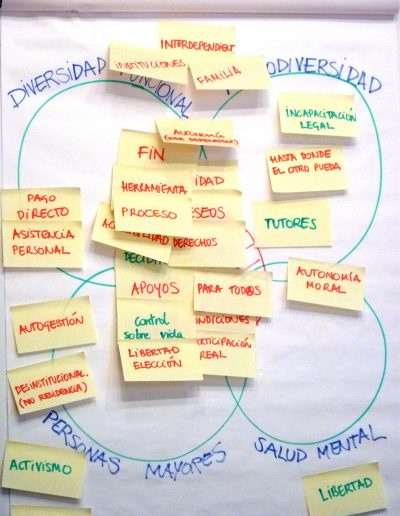 INTERDEPENDIENT.
INSTITUCIONES
FAMILIA
DIVERSIDAD FUNCIONAL
ODIVERSIDAD
INCAPACITACIÓN
LEGAL
AUTONOMÍA
FIN
HASTA DONDE
EL OTRO PUEDA
HERRAMIENTA
IDAD
PROCESO
SEOS
PAGO
DIRECTO
ASISTENCIA
PERSONAL
TUTORES
DERECHOS
DECIDI
AUTONOMÍA
MORAL
APOYOS
PARA TODOS
AUTOGESTIÓN
control
sobre vida
NDICIONES
LIBERTAD
ELECCIÓN
RTICIPACIÓN
REAL
DESINSTITUCIONAL.
(NO RESIDENCIA)
PERSONAS MAYORES
SALUD MENTAL
ACTIVISMO
LIBERTAD